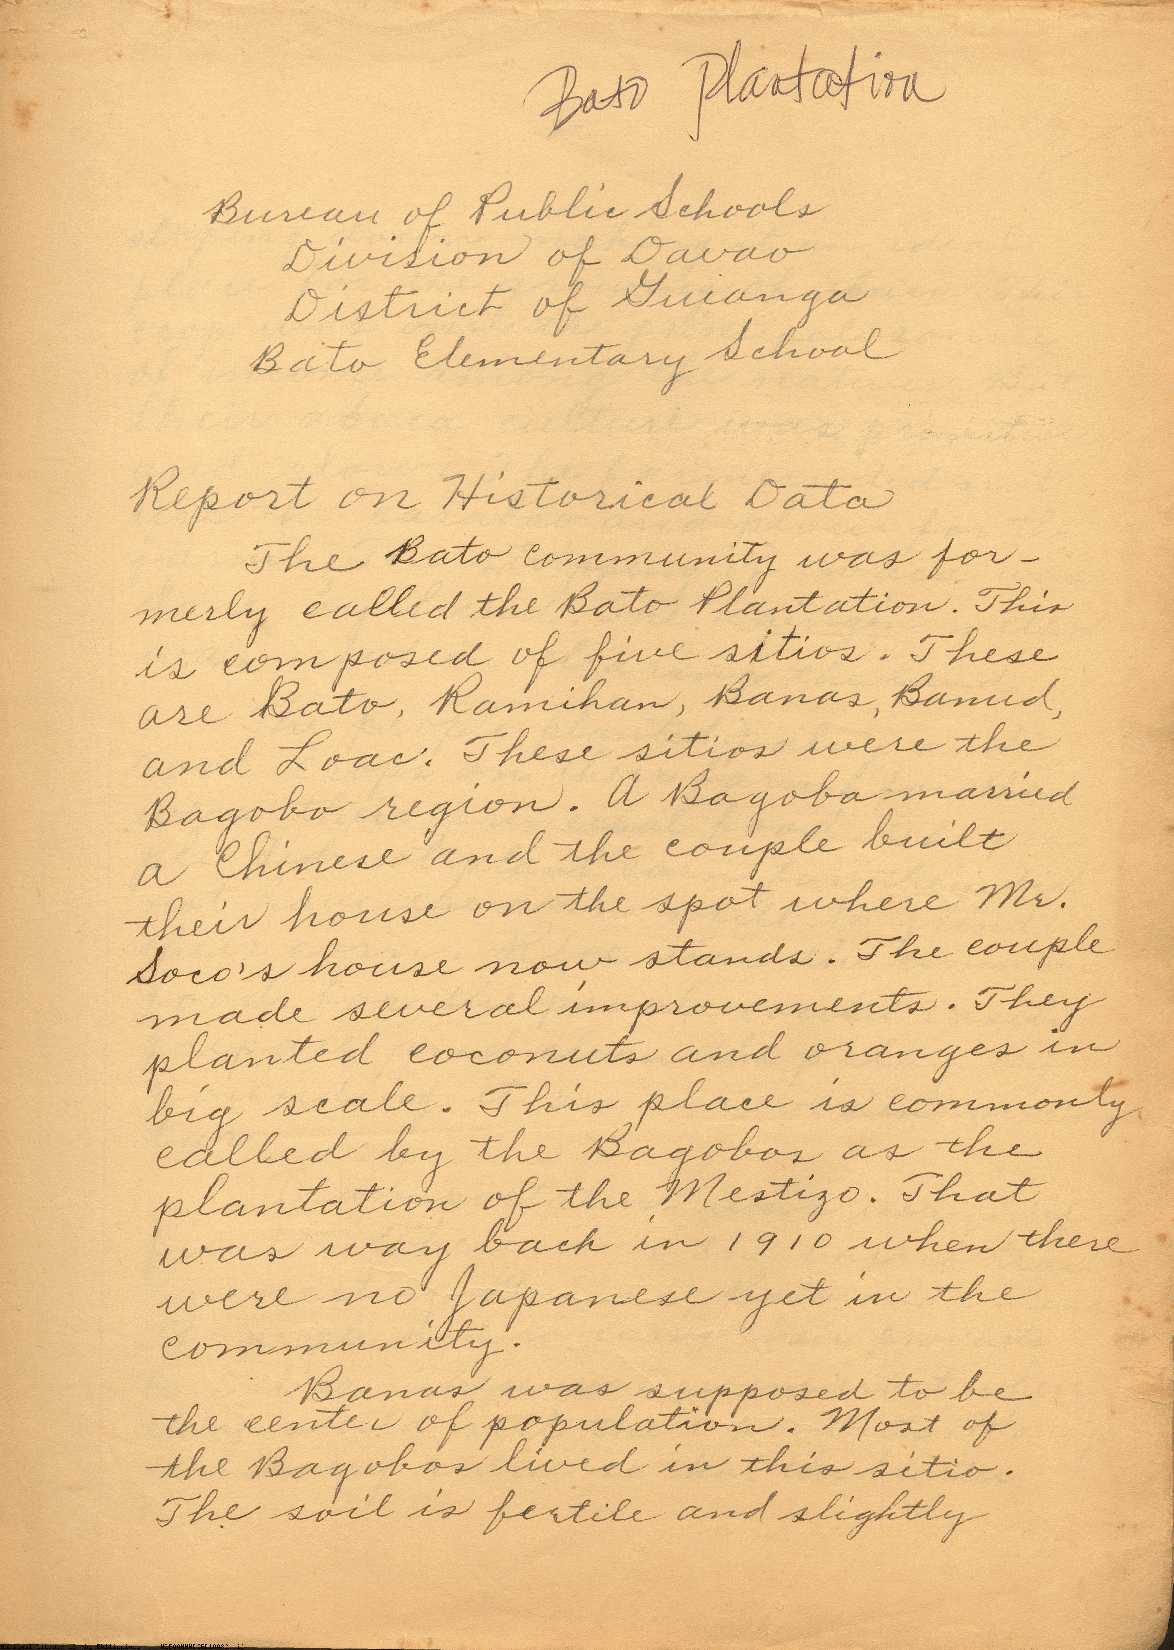 Bato Plantation
Bureau of Public Schools
Division of Davao
District of Guianga
Bato Elementary School
Report on Historical Data
The Bato community was for-
merly called the Bato Plantation. This
is composed of five sitios. These
are Bato, Ramihan, Banas, Banud,
and Loac. These sitios were the
Bagobo region. A Bagoba married
a Chinese and the couple built
their house on the spot where Mr.
Soco's house now stands. The couple
made several improvements. They
planted coconuts and oranges in
big scale. This place is commonly
called by the Bagobos as the
plantation of the Mestizo. That
was way back in 1910 when there
were no Japanese yet in the
community.
Banas was supposed to be
the center of population. Most of
the Bagobos lived in this sitio.
The soil is fertile and slightly